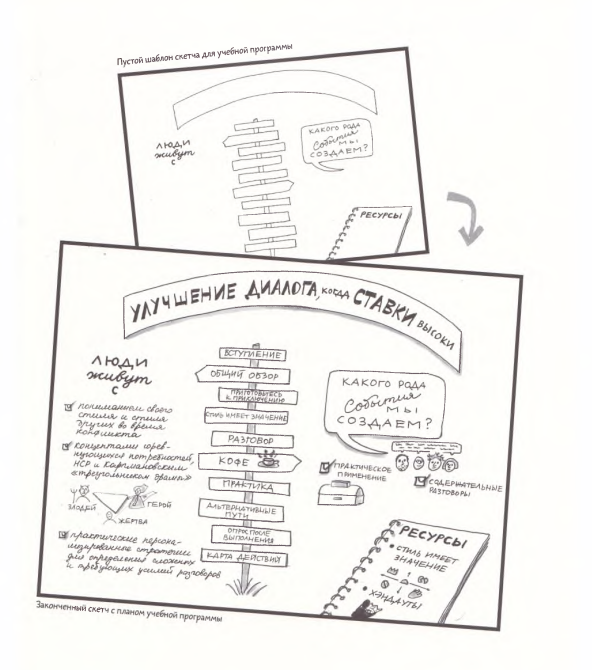 Пустой шаблон скетча для учебной программы
ЛЮДИ
живут
с
КАКОГО РОДА
События
МЫ
СОЗДАЕМ?
РЕСУРСЫ
УЛУЧШЕНИЕ ДИАЛОГА, КОГДА СТАВКИ ВЫСОКИ
ЛЮДИ
живут
с
пониманием своего
стиля и стиля
других во время
конфликта
концептами сорев-
нующихся потребностей,
НСР и Карпмановским
«треугольником драмы»
ЗЛОДЕЙ
ГЕРОЙ
ЖЕРТВА
практические персона-
лизированные стратегии
для определения сложных
и требующих усилий разговоров
ВСТУПЛЕНИЕ
ОБЩИЙ ОБЗОР
ПРИГОТОВЬТЕСЬ
К ПРИКЛЮЧЕНИЮ
СТИЛЬ ИМЕЕТ ЗНАЧЕНИЕ
РАЗГОВОР
КОФЕ
ПРАКТИКА
АЛЬТЕРНАТИВНЫЕ
ПУТИ
ОПРОС ПОСЛЕ
ВЫПОЛНЕНИЯ
КАРТА ДЕЙСТВИЙ
КАКОГО РОДА
События
МЫ
СОЗДАЕМ?
ПРАКТИЧЕСКОЕ
ПРИМЕНЕНИЕ
СОДЕРЖАТЕЛЬНЫЕ
РАЗГОВОРЫ
РЕСУРСЫ
• СТИЛЬ ИМЕЕТ
ЗНАЧЕНИЕ
• ХЭНДАУТЫ
Законченный скетч с планом учебной программы